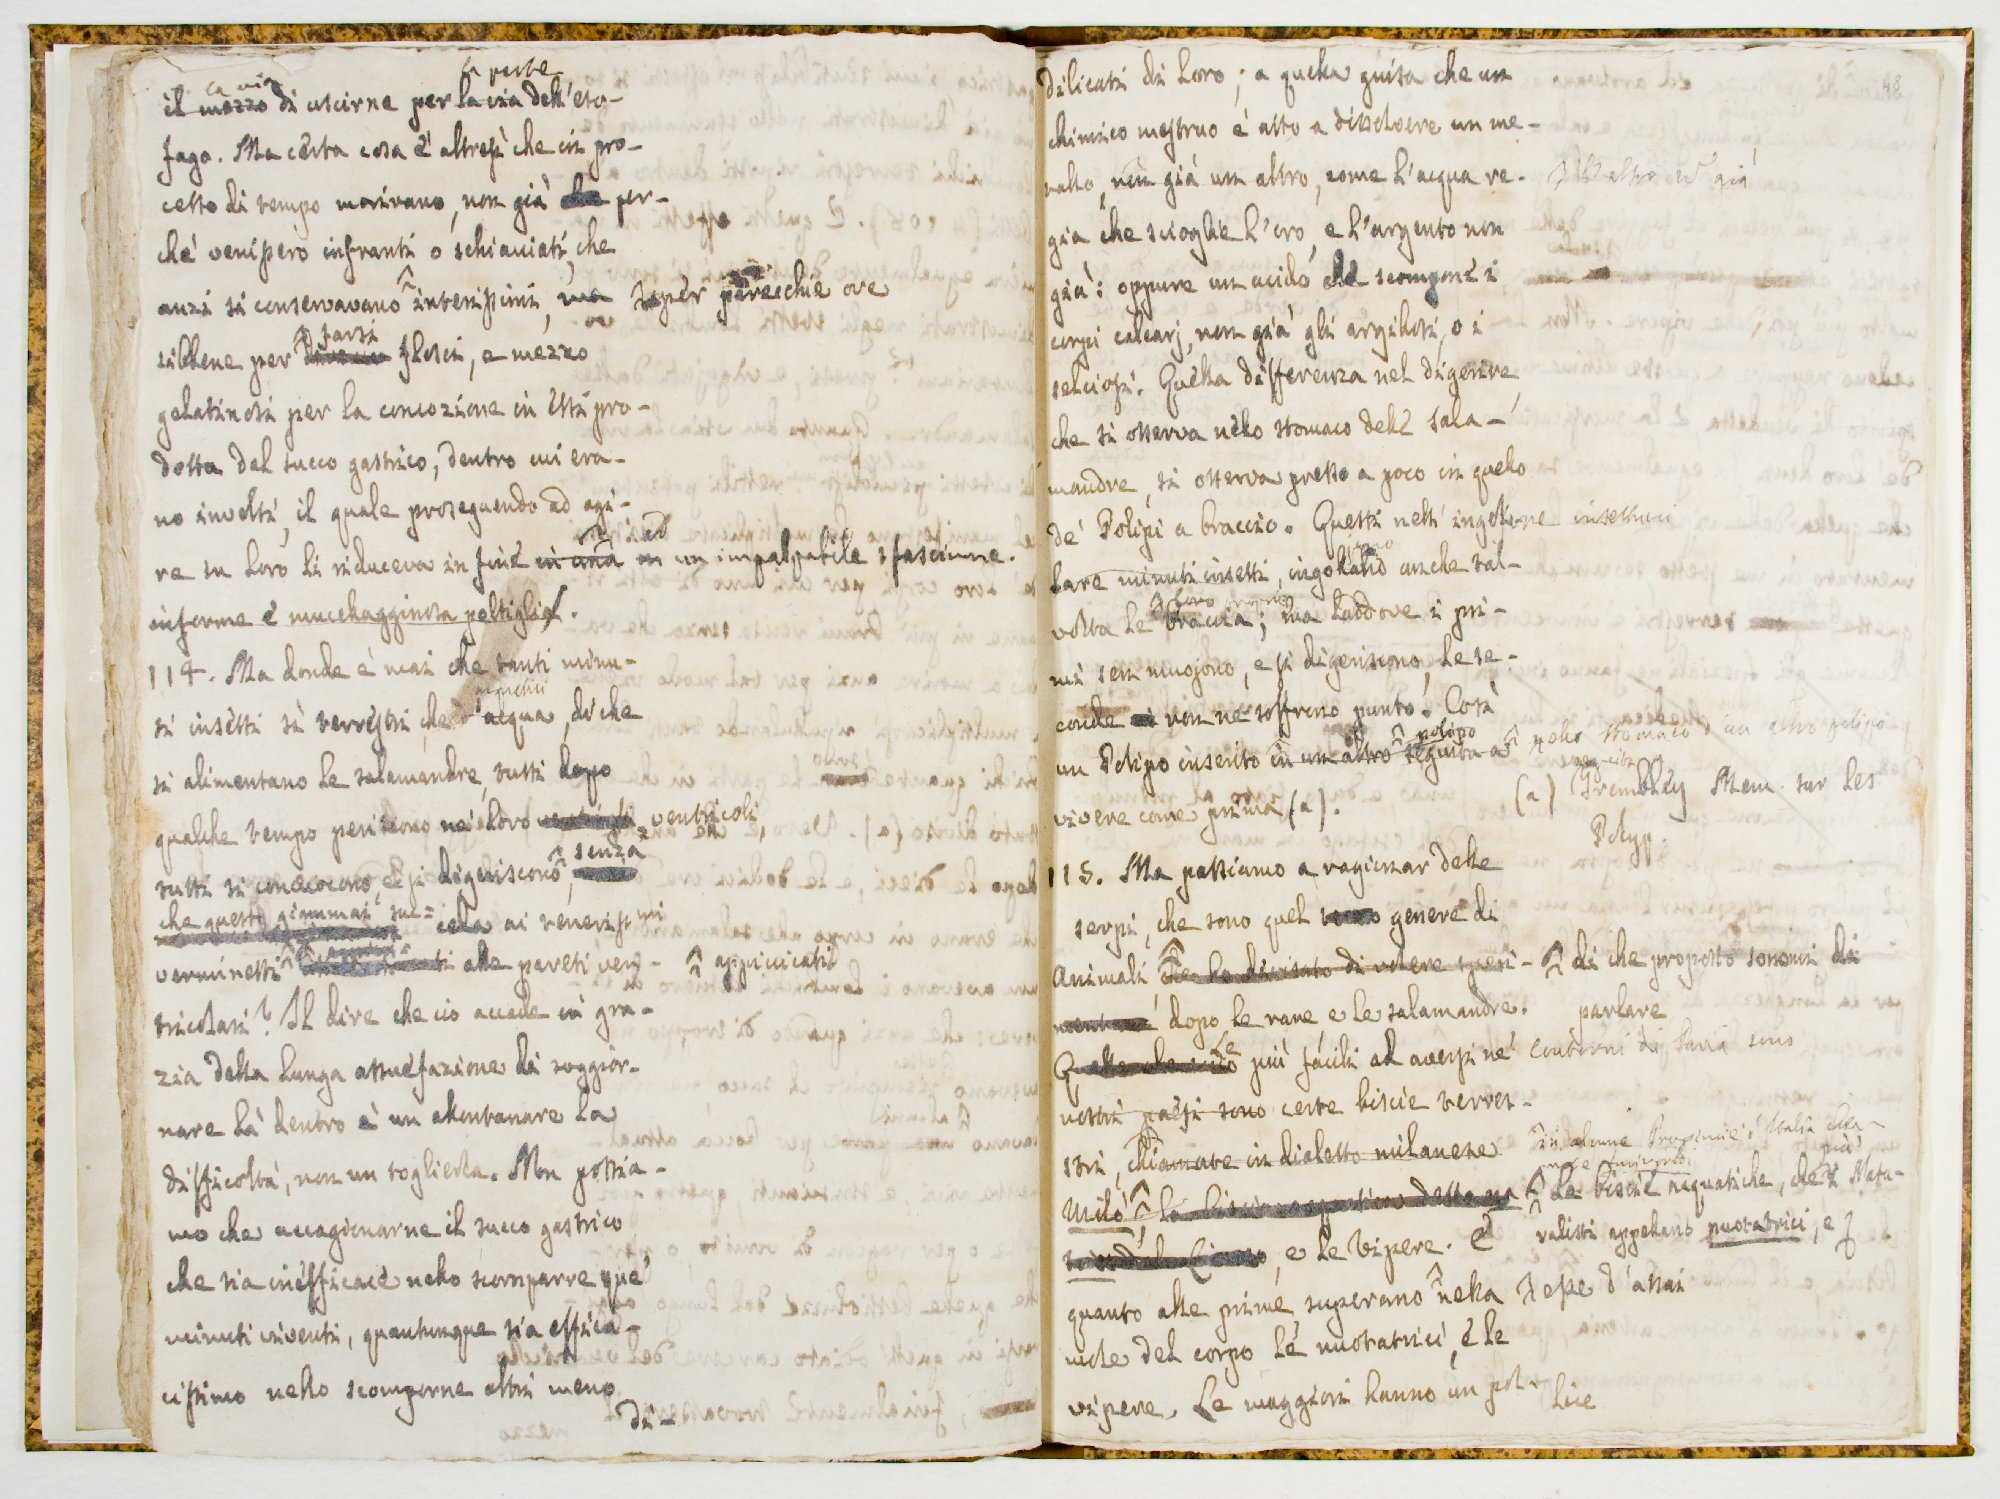 la via
il mezzo di uscirne per la via dell'eso-
fago. Ma certa cosa è altresì che in pro-
cesso di tempo morivano, non già per-
chè venissero infranti o schiacciati, che
anzi si conservavano interissimi, per parecchie ore
farsi
sibbene per flosci, e mezzo
gelatinosi per la concozione in essi pro-
dotta dal succo gastrico, dentro cui era-
no involti, il quale proseguendo ad agi-
re su loro li riduceva in fine in una un impalpabile sfasciume.
informe e mucellagginosa poltiglia.
114. Ma donde è mai che tanti minu-
ti insetti sì terrestri, che d'acqua, di che
si alimentano le salamandre, tutti dopo
qualche tempo periscono ne' loro ventricoli,
tutti si concocono, e si digeriscono, senza
che questo giammai suc-
ceda ai tenerissimi
verminetti alle pareti ven- appiccicati
tricolari? Il dire che ciò accade in gra-
zia della lunga assuefazione di soggior-
nare là dentro è un allontanare la
difficoltà, non un toglierla. Non possia-
mo che accagionarne il succo gastrico
che sia inefficace nello scomporre que'
minuti viventi, quantunque sia effica-
cissimo nello scomporne altri meno
di-
48
dilicati di loro; a quella guisa che un
chimico mestruo è atto a dissolvere un me-
tallo, non già un altro, come l'acqua re-
gia che scioglie l'oro, e l'argento non
già: oppure un acido che scompone i
corpi calcarj, non già gli argilosi, o i
selciosi. Quella differenza nel digerire,
che si osserva nello stomaco delle sala-
mandre, si osserva presso a poco in quello
de' Polipi a braccio. Questi nell'ingojare
minuti insetti, ingojano anche tal-
volta le loro proprie braccia; ma laddove i pri-
mi sen muojono, e si digeriscono, le se-
conde non ne soffrono punto. Così
un Polipo inserito in un altro polipo seguita a nello stomaco d'un altro polipo
seguita
vivere come prima (a).
(a) Trembley Mem. sur les
Polyp.
115. Ma passiamo a ragionar delle
serpi, che sono quel genere di
animali che ho divisato di volere speri- di che proposto sonomi di
mentare dopo le rane e le salamandre. parlare
Le più facili ad aversi ne' contorni di Pavia sono
nostri paesi sono certe biscie terres-
tri, chiamate in dialetto milanese in alcune Provincie d'Italia
Milò, le biscie acquatiche, che i Natu-
ralisti appellano nuotatrici, e
e le Vipere. E
quanto alle prime, superano nella d'assai
mole del corpo le nuotatrici, e le
vipere. Le maggiori hanno un pol-
lice